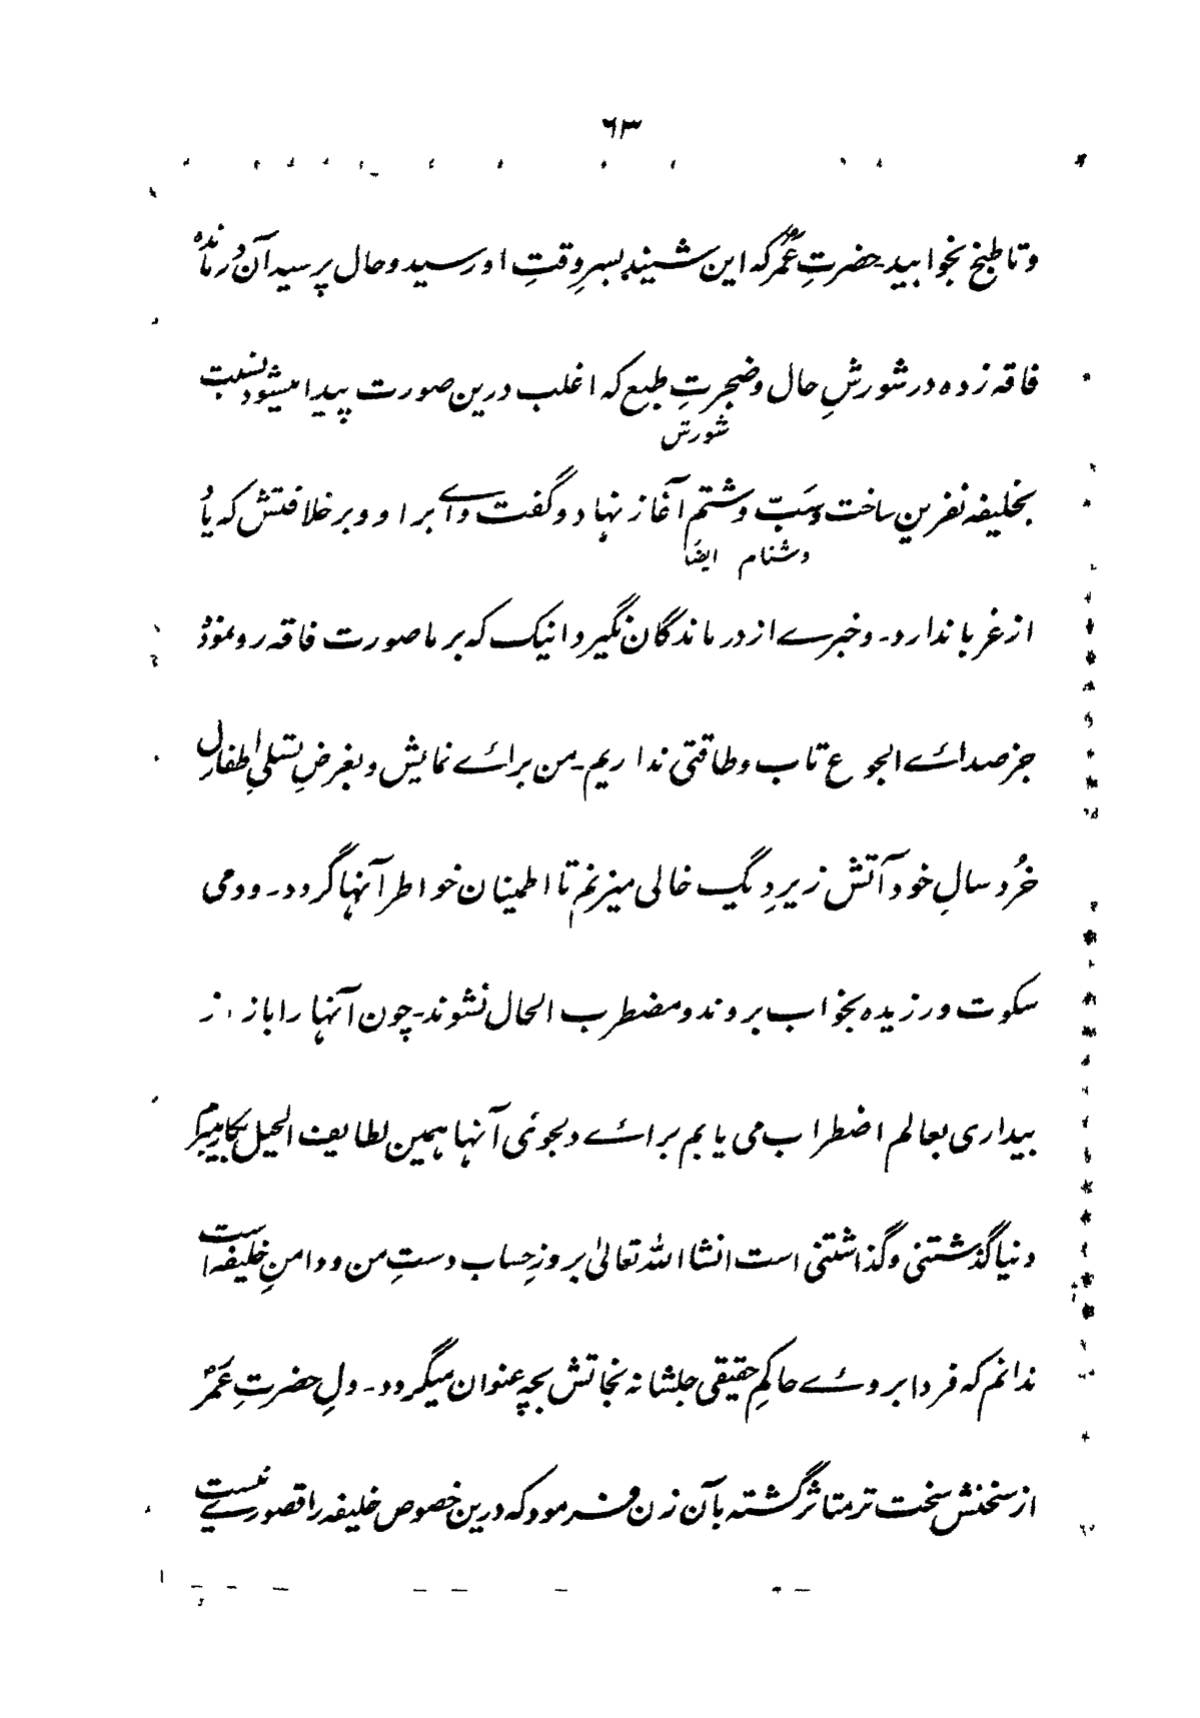 ٦٣
وتا طبخ بخوابید۔ حضرتِ عمرؓ کہ این شنید بسرِ وقتِ او رسید و حال پرسید آن درماندہ
فاقہ زدہ در شورشِ حال و ضجرتِ طبع کہ اغلب درین صورت پیدا میشود نسبت
شورش
بخلیفہ نفرین ساخت و سَبّ و شتم آغاز نہاد و گفت وائے بر او و بر خلافتش کہ یادُ
دشنام ایضًا
از غربا ندارد۔ و خبرے از درماندگان نگیرد اینک کہ بر ما صورت فاقہ رو نمودُ
جز صدائے الجوع تاب و طاقتی نداریم۔ من برائے نمایش و بغرضِ تسلیِ اطفالِ
خُرد سالِ خود آتش زیرِ دیگ خالی میزنم تا اطمینان خواطر آنہا گردد۔ و دمی
سکوت ورزیدہ بخواب بروند و مضطرب الحال نشوند۔ چون آنہا را باز از
بیداری بعالم اضطراب می یابم برائے دلجوئی آنہا ہمین لطایف الحیل بکار میبرم
دنیا گذشتنی و گذاشتنی است انشا اللہ تعالیٰ بروزِ حساب دستِ من و دامنِ خلیفہ است
ندانم کہ فردا بروئے حاکمِ حقیقی جلشانہ نجاتش بچہ عنوان میگردد۔ دلِ حضرتِ عُمَرؓ
از سخنش سخت تر متاثر گشتہ بآن زن فرمود کہ درین خصوص خلیفہ را قصورے نیست